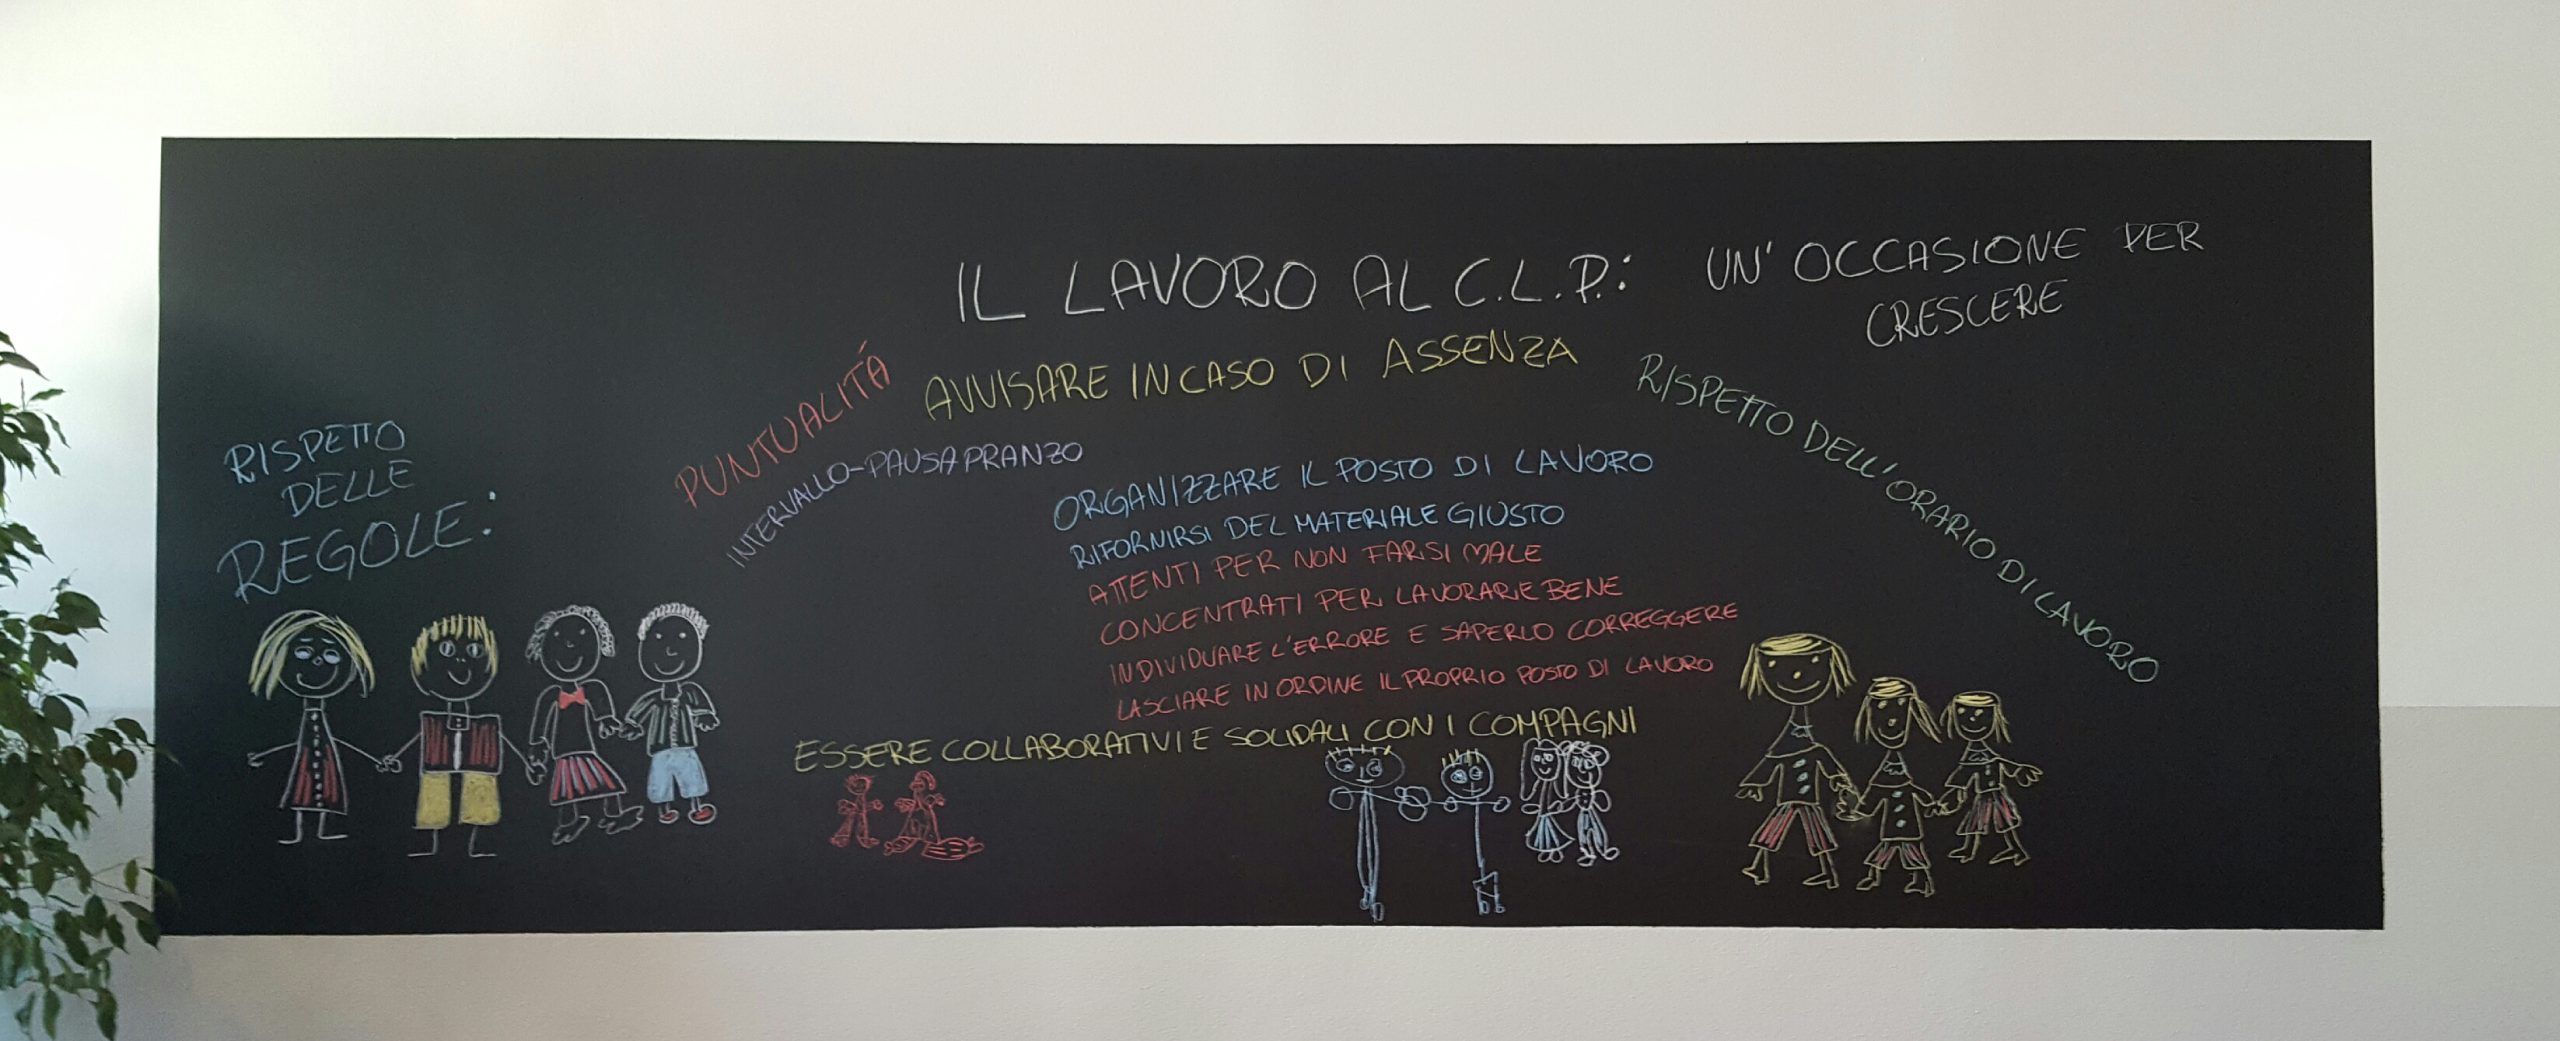 IL LAVORO AL C.L.P.: UN' OCCASIONE PER
CRESCERE
RISPETTO
DELLE
REGOLE:
PUNTUALITÁ
AVVISARE IN CASO DI ASSENZA
RISPETTO DELL'ORARIO DI LAVORO
INTERVALLO-PAUSA PRANZO
ORGANIZZARE IL POSTO DI LAVORO
RIFORNIRSI DEL MATERIALE GIUSTO
ATTENTI PER NON FARSI MALE
CONCENTRATI PER LAVORARE BENE
INDIVIDUARE L'ERRORE E SAPERLO CORREGGERE
LASCIARE IN ORDINE IL PROPRIO POSTO DI LAVORO
ESSERE COLLABORATIVI E SOLIDALI CON I COMPAGNI